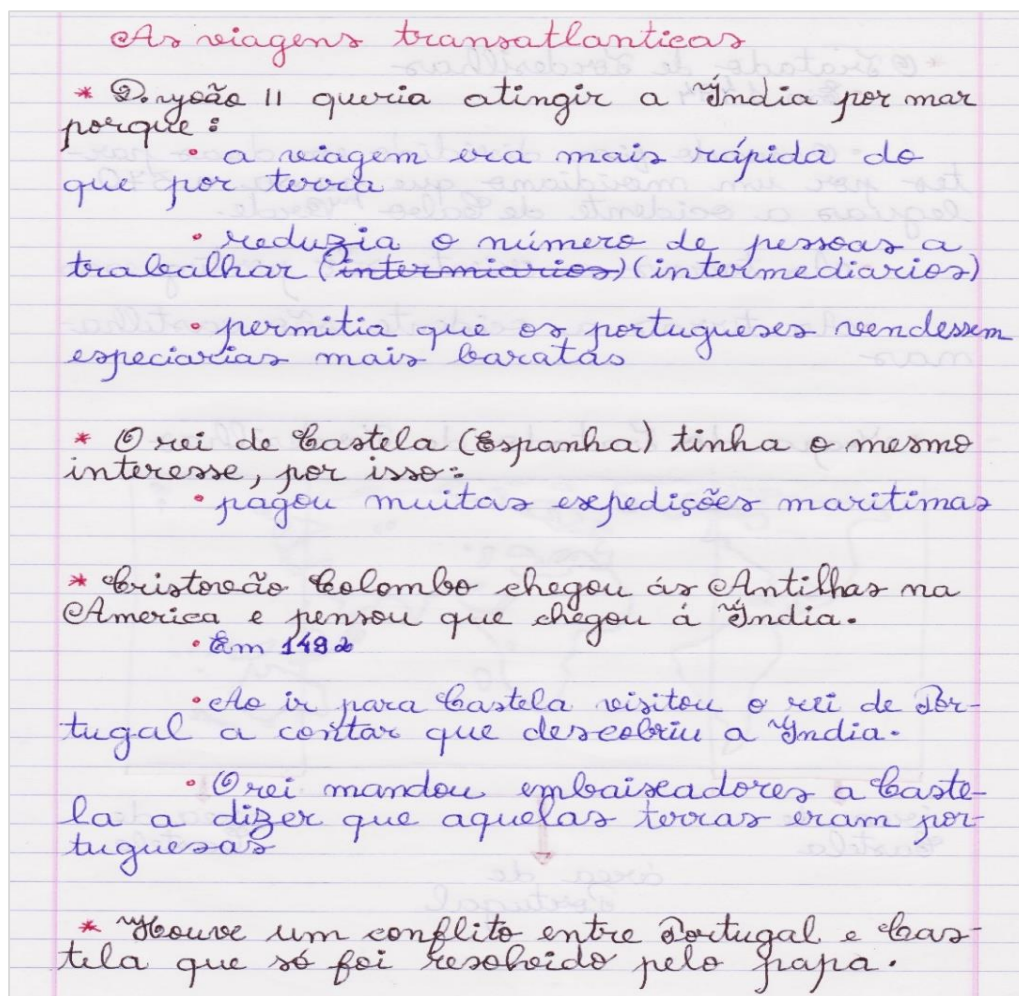 As viagens transatlanticas
* D. João II queria atingir a Índia por mar
porque:
• a viagem era mais rápida do
que por terra
• reduzia o número de pessoas a
trabalhar (intermiarios) (intermediarios)
• permitia que os portugueses vendessem
especiarias mais baratas
* O rei de Castela (Espanha) tinha o mesmo
interesse, por isso:
• pagou muitas expedições maritimas
* Cristovão Colombo chegou ás Antilhas na
America e pensou que chegou á Índia.
• Em 1492
• Ao ir para Castela visitou o rei de Por-
tugal a contar que descobriu a Índia.
• O rei mandou embaixadores a Caste-
la a dizer que aquelas terras eram por-
tuguesas
* Houve um conflito entre Portugal e Cas-
tela que só foi resolvido pelo papa.